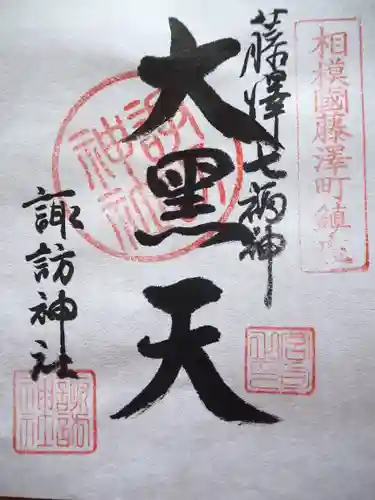 相模國藤澤町鎮座
藤澤七福神
大黑天
諏訪神社
諏訪神社
諏訪神社